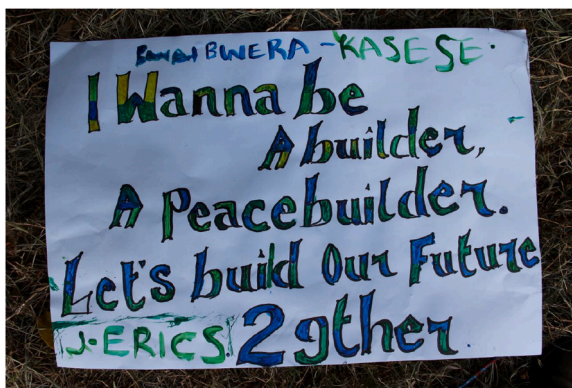 BWERA - KASESE.
I Wanna be
A builder,
A Peacebuilder.
Let's build Our Future
J. ERICS. 2gther.